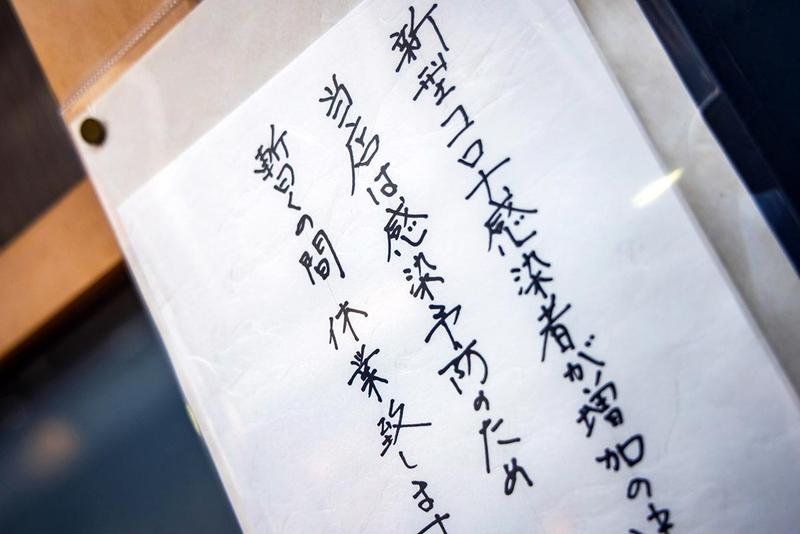 新型コロナ感染者が増加の
当店は感染予防のため
暫くの間 休業致します